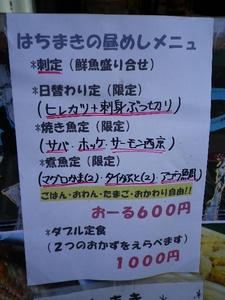 はちまきの昼めしメニュ
*刺定(鮮魚盛り合せ)
*日替わり定(限定)
(ヒレカツ+刺身ぶつ切り)
*焼き魚定(限定)
(サバ・ホッケ・サーモン西京)
*煮魚定(限定)
(マグロかま(2)・タイかぶと(2)・アコウ鯛)
ごはん・おわん・たまご・おかわり自由!!
おーる600円
*ダブル定食
(2つのおかずをえらべます)
1000円